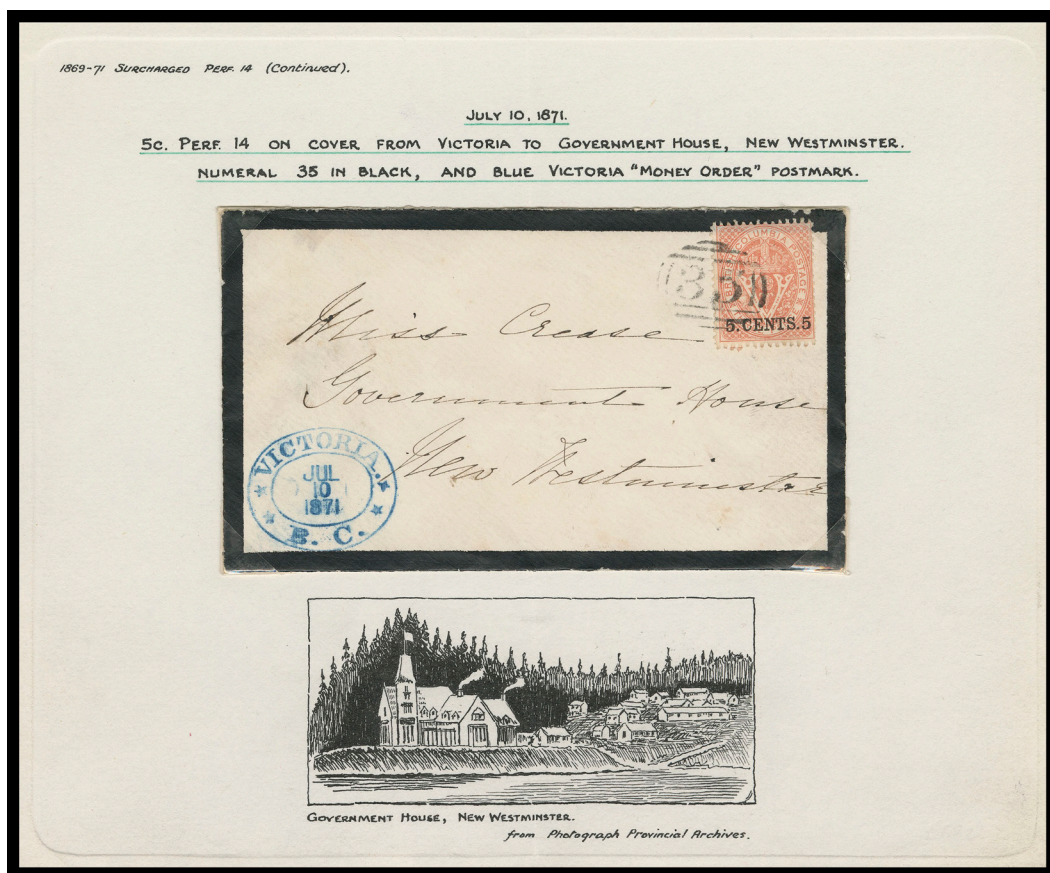 1869-71 SURCHARGED PERF. 14 (Continued).
JULY 10, 1871.
5c. PERF. 14 ON COVER FROM VICTORIA TO GOVERNMENT HOUSE, NEW WESTMINSTER.
NUMERAL 35 IN BLACK, AND BLUE VICTORIA "MONEY ORDER" POSTMARK.
BRITISH COLUMBIA POSTAGE
35
5.CENTS.5
Miss Crease
Government House
New Westminster
VICTORIA.
JUL
10
1871
B. C.
GOVERNMENT HOUSE, NEW WESTMINSTER.
from Photograph Provincial Archives.